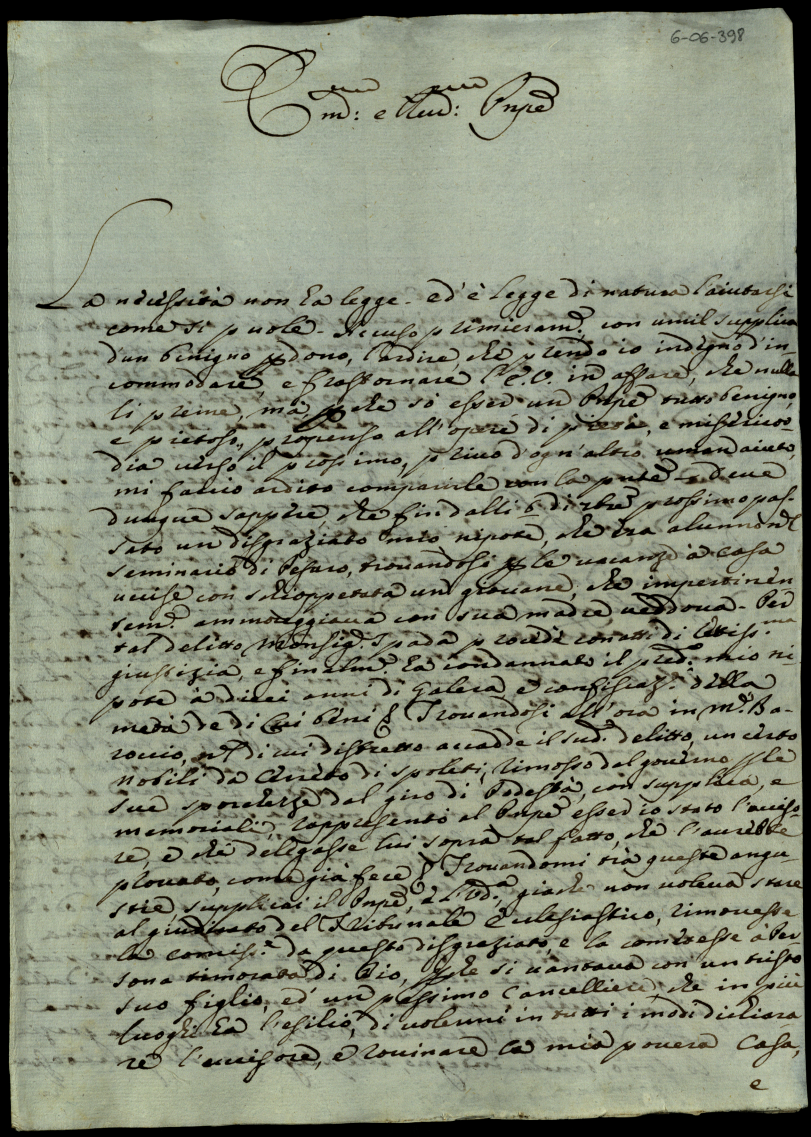 6-06-398
Em:mo e Reu:mo Pnpe
La necessità non ha legge. ed' è legge di natura l'aiutarsi
come si puole. Accuso primieram:e con umil supplica
d'un benigno pdono, l'ardire, che prendo io indegno d'in-
commodare, e frastornare l'E.V. in affare, che nulla
li preme, mà pche sò esser un Pnpe tutto benigno,
e pietoso, propenso all'opere di pietà, e misericor-
dia verso il prossimo, priuo d'ogn'altro uman aiuto,
mi faccio ardito comparirle con la pnte. e deue
dunque sappire, che fin dalli 6 di 9bre prossimo pas-
sato un disgraziato mio nipote, che era alunno nel
seminario di Pesaro, trouandosi p le uacanze à casa
uccise con schioppettata un giouane, che impertinen
tem:e ammoreggiaua con sua madre ueddoua. Per
tal delitto Monsig:r Spada procedè con atti di Cttiss:ma
giustizia, e finalm:e ha condannato il pred:o mio ni
pote à dieci anni di Galera, e confiscaz:e della
metà de di lui beni. Trouandosi all'ora in M:te Ba-
roccio, nel di cui distretto accadde il sud:o delitto, un certo
Nobili da Cerreto di Spoleti, rimosso dal gouerno p le
sue sporchezze dal giro di Podestà, con supplica, e
memoriali, rappresentò al Pnpe esser io stato l'ucciso-
re, e che delegasse lui sopra tal fatto, che l'aurebbe
prouato, come già fece. Trouandomi trà queste angu
stie, supplicai il Pnpe, e L'Od:a, giache non uoleua stare
al giudicato del Tribunale Ecclesiastico, rimouesse
la comiss:e da questo disgraziato, e la comettesse à Per
sona timorata di Dio, pche si uantaua con un tristo
suo figlio, ed' un pessimo Cancelliere, che in più
luoghi ha l'esilio, di uolermi in tutti i modi dichiara
re l'uccisore, e rouinare la mia pouera Casa,
e